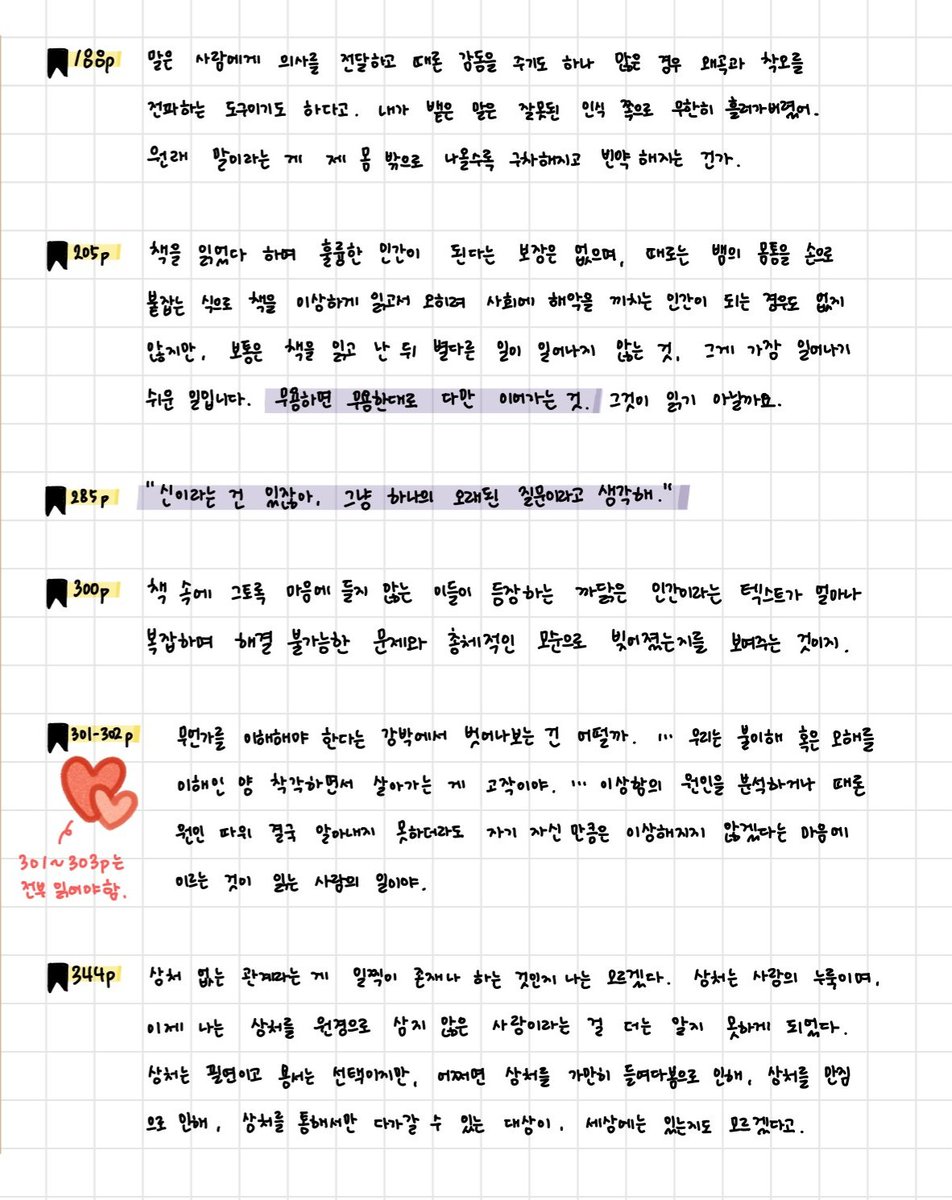 188p 말은 사람에게 의사를 전달하고 때론 감동을 주기도 하나 많은 경우 왜곡과 착오를
전파하는 도구이기도 하다고. 내가 뱉은 말은 잘못된 인식 쪽으로 무한히 흘러가버렸어.
원래 말이라는 게 제 몸 밖으로 나올수록 구차해지고 빈약해지는 건가.
205p 책을 읽었다 하여 훌륭한 인간이 된다는 보장은 없으며, 때로는 뱀의 몸통을 손으로
붙잡는 식으로 책을 이상하게 읽고서 오히려 사회에 해악을 끼치는 인간이 되는 경우도 없지
않지만, 보통은 책을 읽고 난 뒤 별다른 일이 일어나지 않는 것, 그게 가장 일어나기
쉬운 일입니다. 무용하면 무용한대로 다만 이어가는 것. 그것이 읽기 아닐까요.
285p "신이라는 건 있잖아, 그냥 하나의 오래된 질문이라고 생각해."
300p 책 속에 그토록 마음에 들지 않는 이들이 등장하는 까닭은 인간이라는 텍스트가 얼마나
복잡하며 해결 불가능한 문제와 총체적인 모순으로 빚어졌는지를 보여주는 것이지.
301-302p 무언가를 이해해야 한다는 강박에서 벗어나보는 건 어떨까. … 우리는 불이해 혹은 오해를
이해인 양 착각하면서 살아가는 게 고작이야. … 이상함의 원인을 분석하거나 때론
원인 따위 결국 알아내지 못하더라도 자기 자신만큼은 이상해지지 않겠다는 마음에
이르는 것이 읽는 사람의 일이야.
301~303p는
전부 읽어야함.
344p 상처 없는 관계라는 게 일찍이 존재나 하는 것인지 나는 모르겠다. 상처는 사랑의 누룩이며,
이제 나는 상처를 원경으로 삼지 않은 사랑이라는 걸 더는 알지 못하게 되었다.
상처는 필연이고 용서는 선택이지만, 어쩌면 상처를 가만히 들여다봄으로 인해, 상처를 만짐
으로 인해, 상처를 통해서만 다가갈 수 있는 대상이, 세상에는 있는지도 모르겠다고.